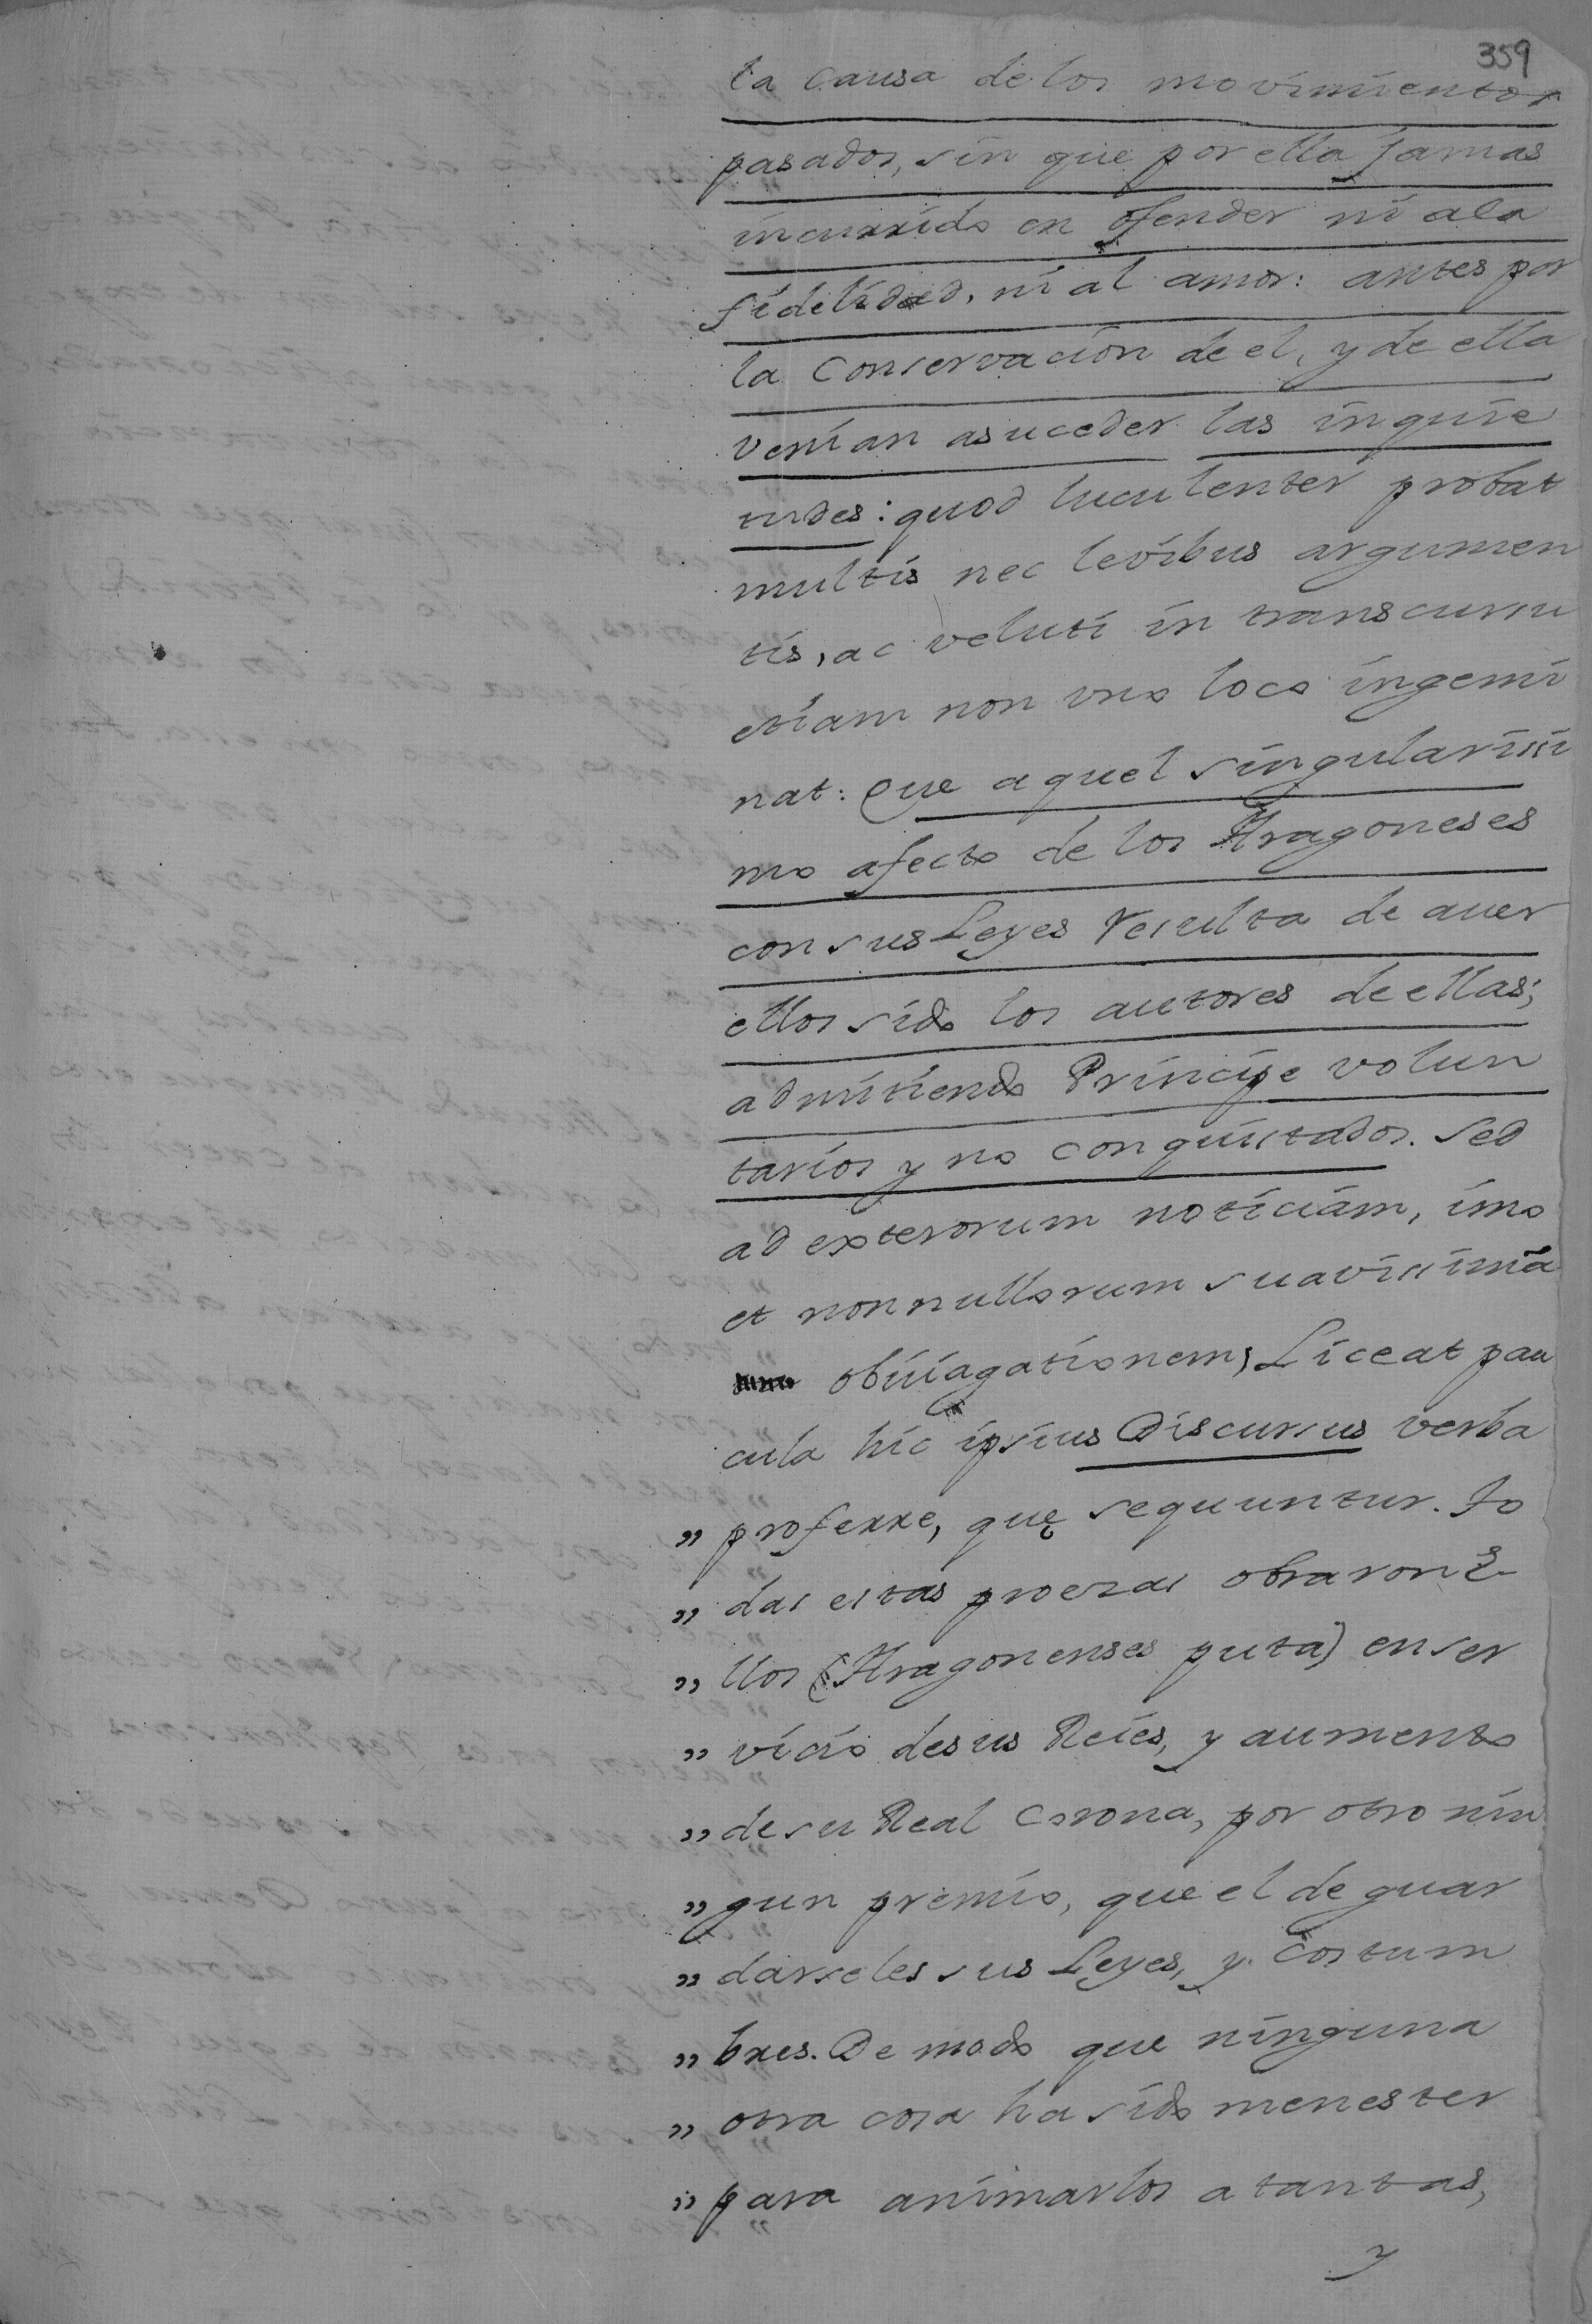 359
la causa de los movimientos
pasados, sin que por ella jamas
incurrido en ofender ni ala
fidelidad, ni al amor: antes por
la Conservacion de el, y de ella
venian asuceder las inquie
tudes: quod luculenter probat
multis nec levibus argumen
tis, ac veluti in transcursu
etiam non uno loco ingemi
nat: Que aquel singularissi
mo afecto de los Aragoneses
con sus Leyes resulta de auer
ellos sido los autores de ellas;
admitiendo Principe volun
tarios y no conquistados. Sed
ad exterorum noticiam, imo
et nonnullorum suavissimā
obiuiagationem, Liceat pau
cula hic ipsius Discursus verba
" proferre, quę sequuntur. To
" das estas proezas obraron E
" llos (Aragonenses puta) en ser
" vicio desus Reies, y aumento
" de su Real Corona, por otro nin
" gun premio, que el de guar
" darseles sus Leyes, y Costum
" bres. De modo que ninguna
" otra cosa ha sido menester
" para animarlos a tantas,
y